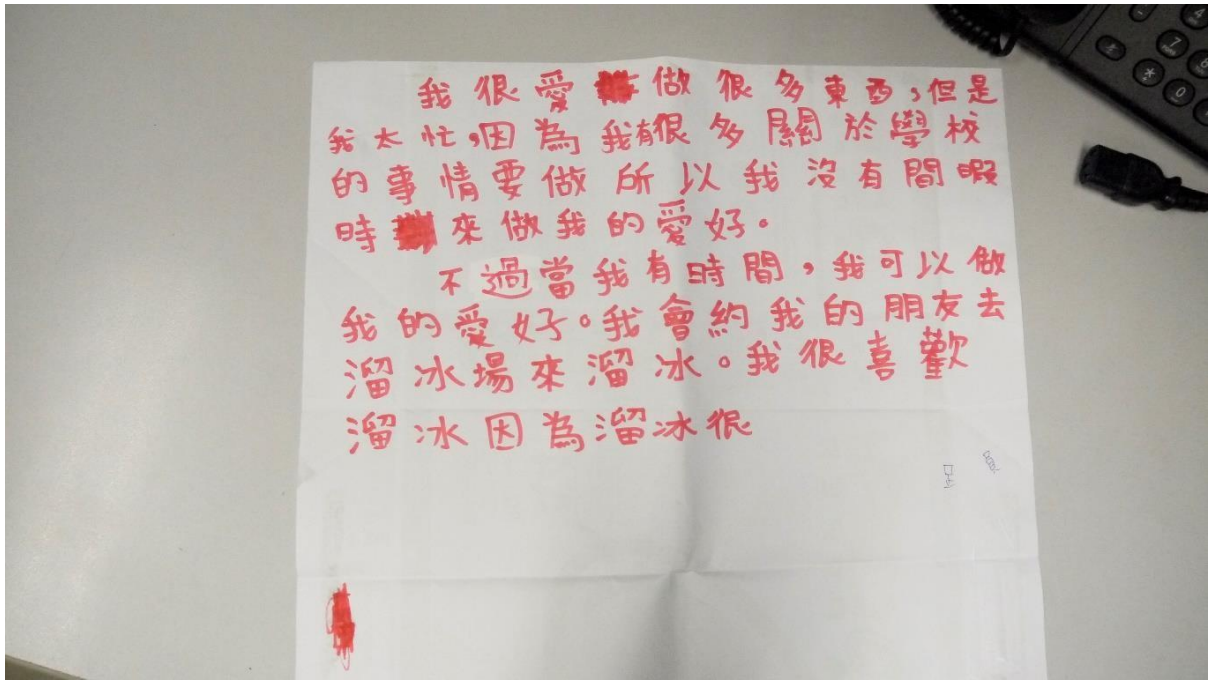 我很愛做很多東西,但是
我太忙,因為我有很多關於學校
的事情要做所以我沒有間暇
時來做我的愛好。
不過當我有時間,我可以做
我的愛好。我會約我的朋友去
溜冰場來溜冰。我很喜歡
溜冰因為溜冰很